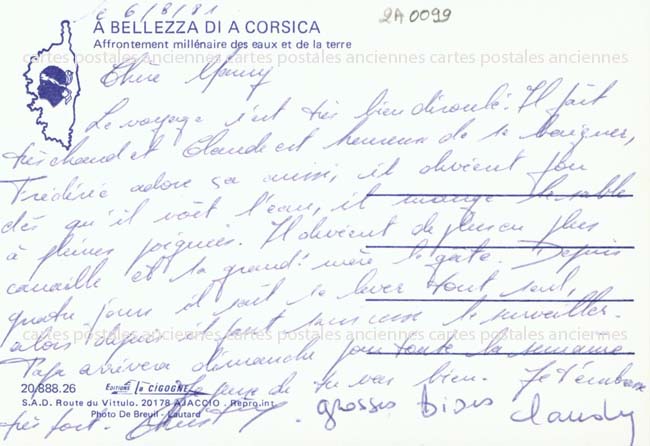 le 6/8/81
2A0099
A BELLEZZA DI A CORSICA
Affrontement millénaire des eaux et de la terre
cartes postales anciennes cartes postales anciennes cartes postales anciennes
Chère
Le voyage s'est très bien déroulé. Il fait
très chaud et Claude est heureux de se baigner,
Frédéric adore ça aussi, il devient fou
dès qu'il voit l'eau, il mange le sable
à pleines poignées. Il devient de plus en plus
canaille et sa grand'mère le gâte. Depuis
quatre jours il sait se lever tout seul,
alors depuis il faut sans cesse le surveiller.
cartes postales anciennes cartes postales anciennes cartes postales anciennes
Papa arrivera dimanche pour toute la semaine
20.888.26 Editions la CIGOGNE
que tu vas bien. Je t'embrasse
S.A.D. Route du Vittulo. 20178 AJACCIO - Repro.int.
Photo De Breuil - Lautard
très fort. grosses bises Claudy